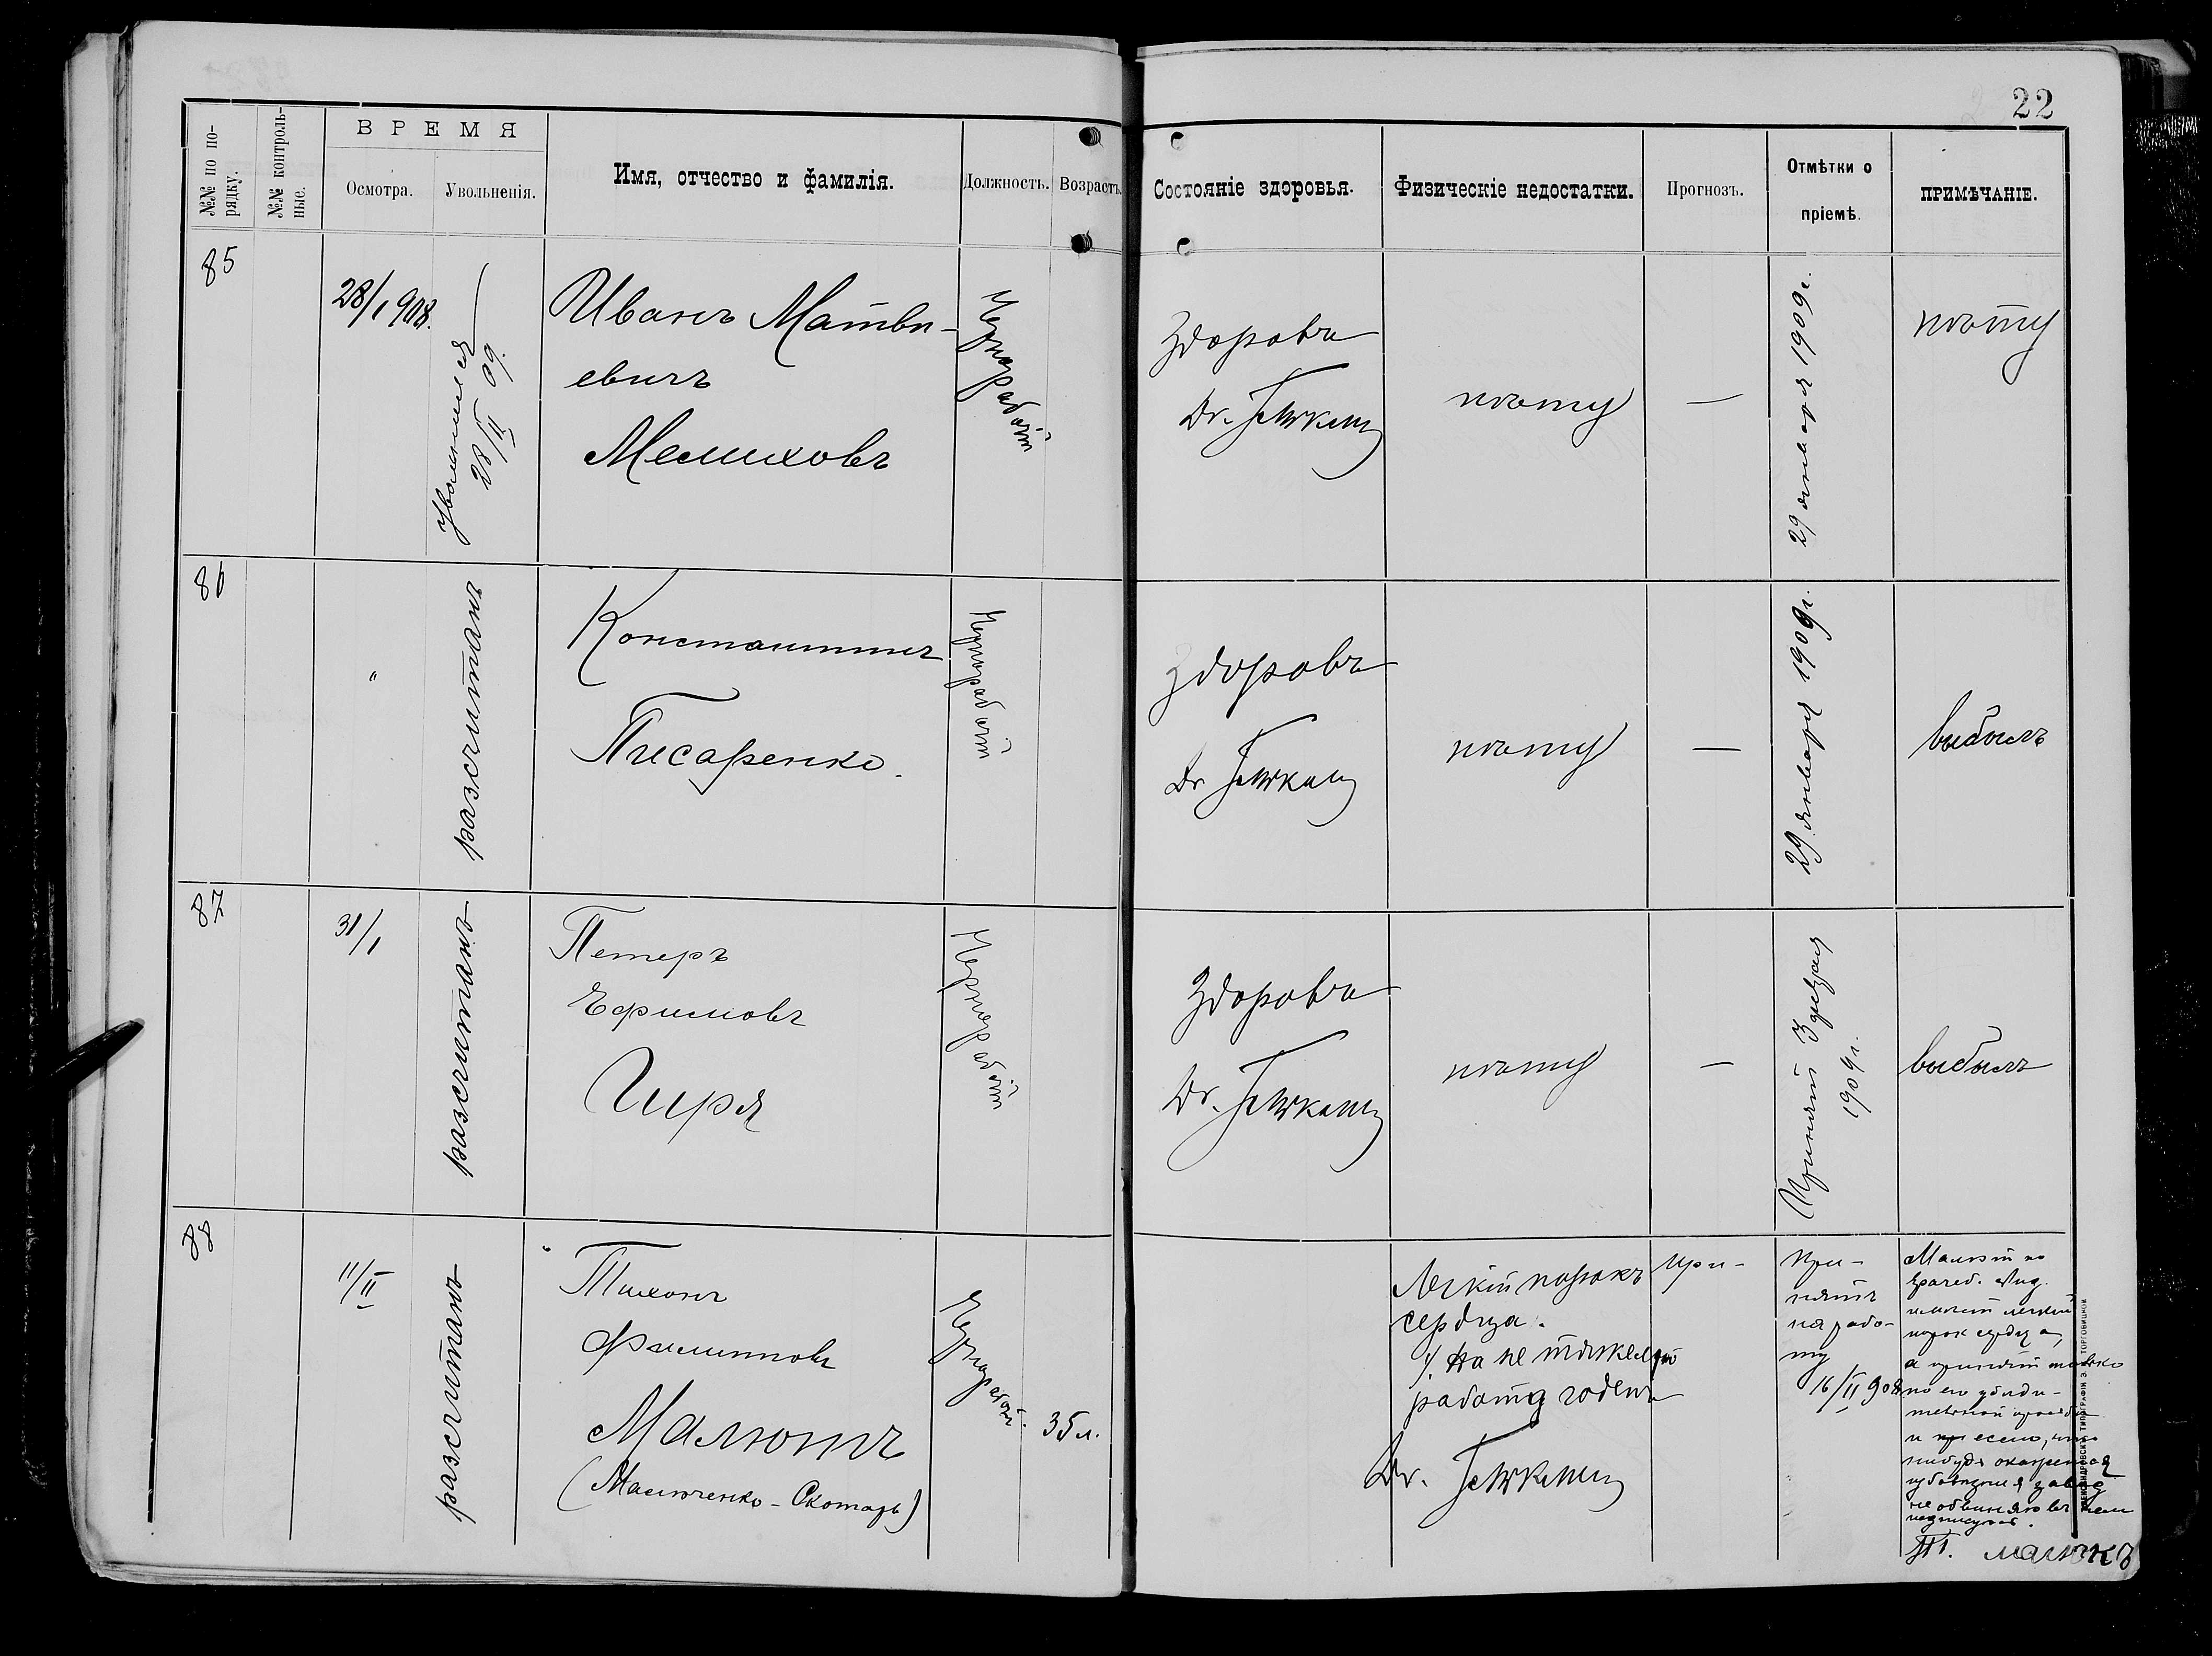 22
№№ по по-
рядку.
№№ контроль-
ные.
ВРЕМЯ
Осмотра.
Увольненія.
Имя, отчество и фамилія.
Должность.
Возрастъ.
Состояніе здоровья.
Физическіе недостатки.
Прогнозъ.
Отмѣтки о
пріемѣ.
ПРИМѢЧАНІЕ.
85
28/1 908.
Уволился
28/II 09.
Иванъ Матви-
евичъ
Мелиховъ
Чернорабочій
Здоровъ
Dr.
нѣту
—
29 января 1909г.
нѣту
86
"
разсчитанъ
Константинъ
Писаренко.
Чернорабочій
Здоровъ
Dr
нѣту
—
29 января 1909г.
выбылъ
87
31/1
разсчитанъ
Петеръ
Ефимовъ
Гиря
Чернорабочій
Здоровъ
Dr.
нѣту
—
Принятъ 3 февраля
1909г.
выбылъ
88
11/II
разсчитанъ
Тихонъ
Филиповъ
Малюкъ
(Малюченко-Скотарь)
Чернорабочій.
35 л.
Легкій порокъ
сердца.
На не тяжелую
работу годенъ
Dr.
При-
нятъ
на рабо-
ту
16/II 908
легкій
порок сердца,
а принятъ только
по его убѣди-
тельной просьбѣ
не обвиняю въ
Т. Малюкъ